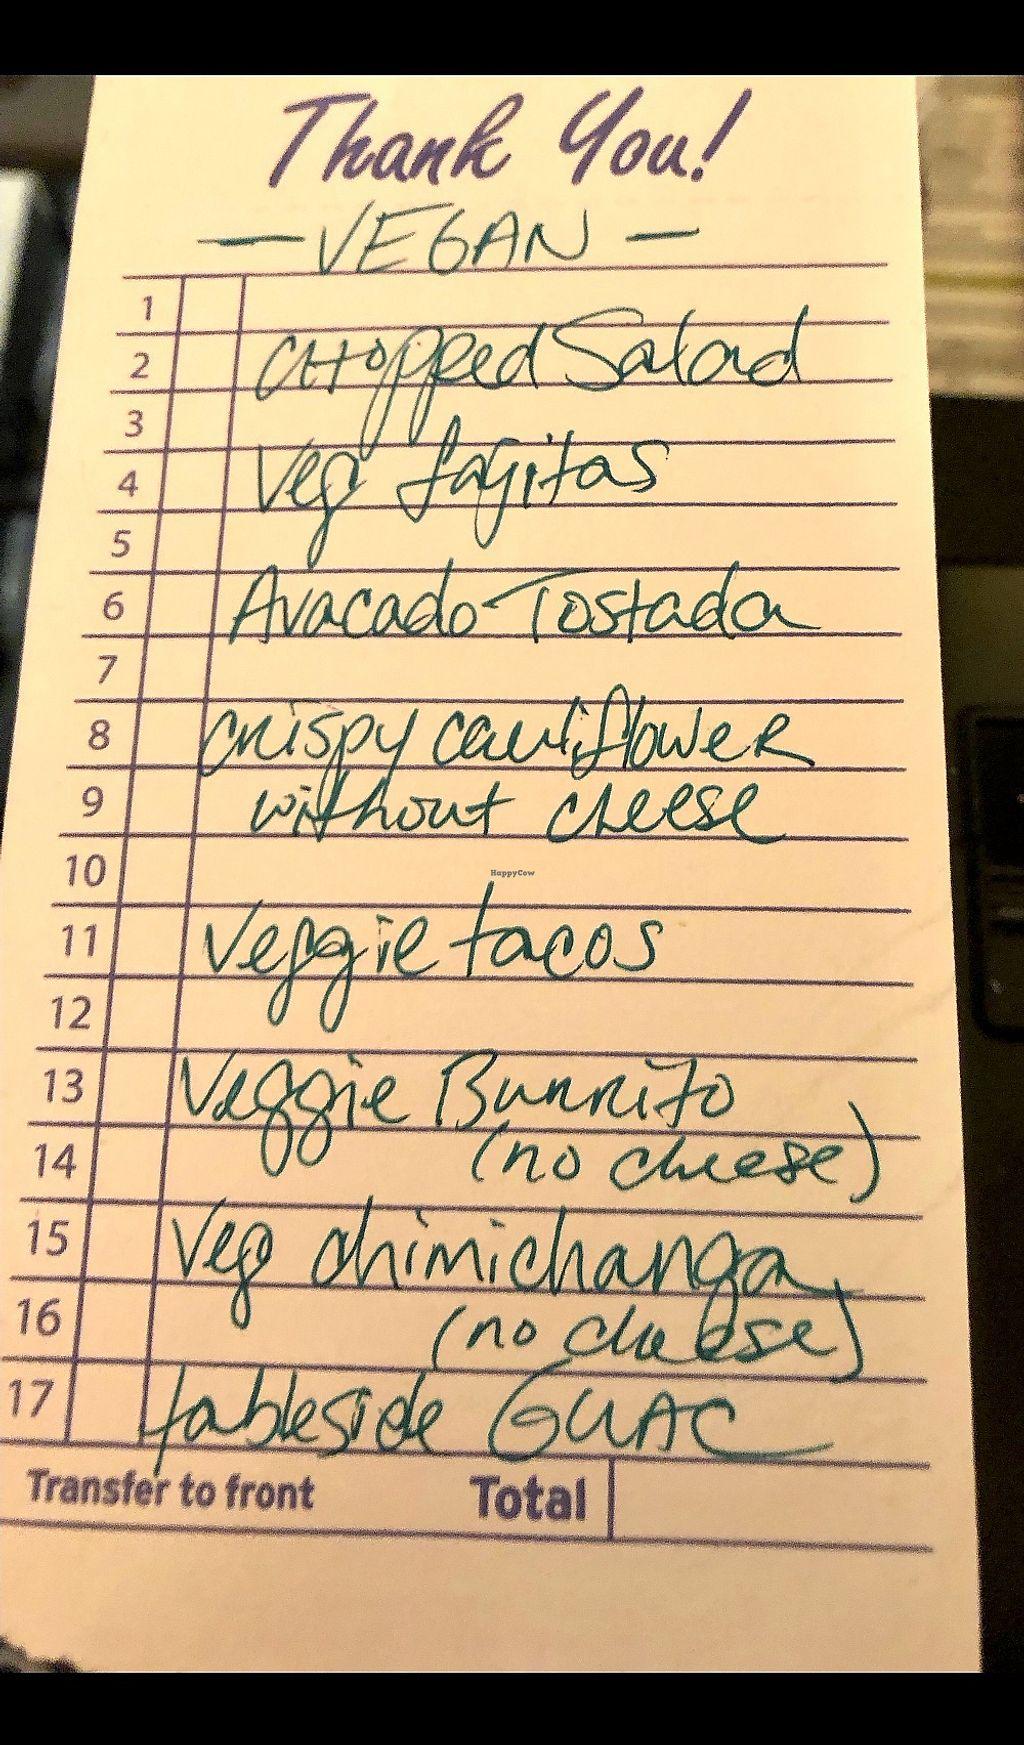 Thank You!
— VEGAN —
1
2 CHopped Salad
3
4 Veg fajitas
5
6 Avacado Tostada
7
8 crispy cauliflower
9 without cheese
10
HappyCow
11 Veggie tacos
12
13 Veggie Burrito
14 (no cheese)
15 Veg chimichanga
16 (no cheese)
17 tableside GUAC
Transfer to front Total